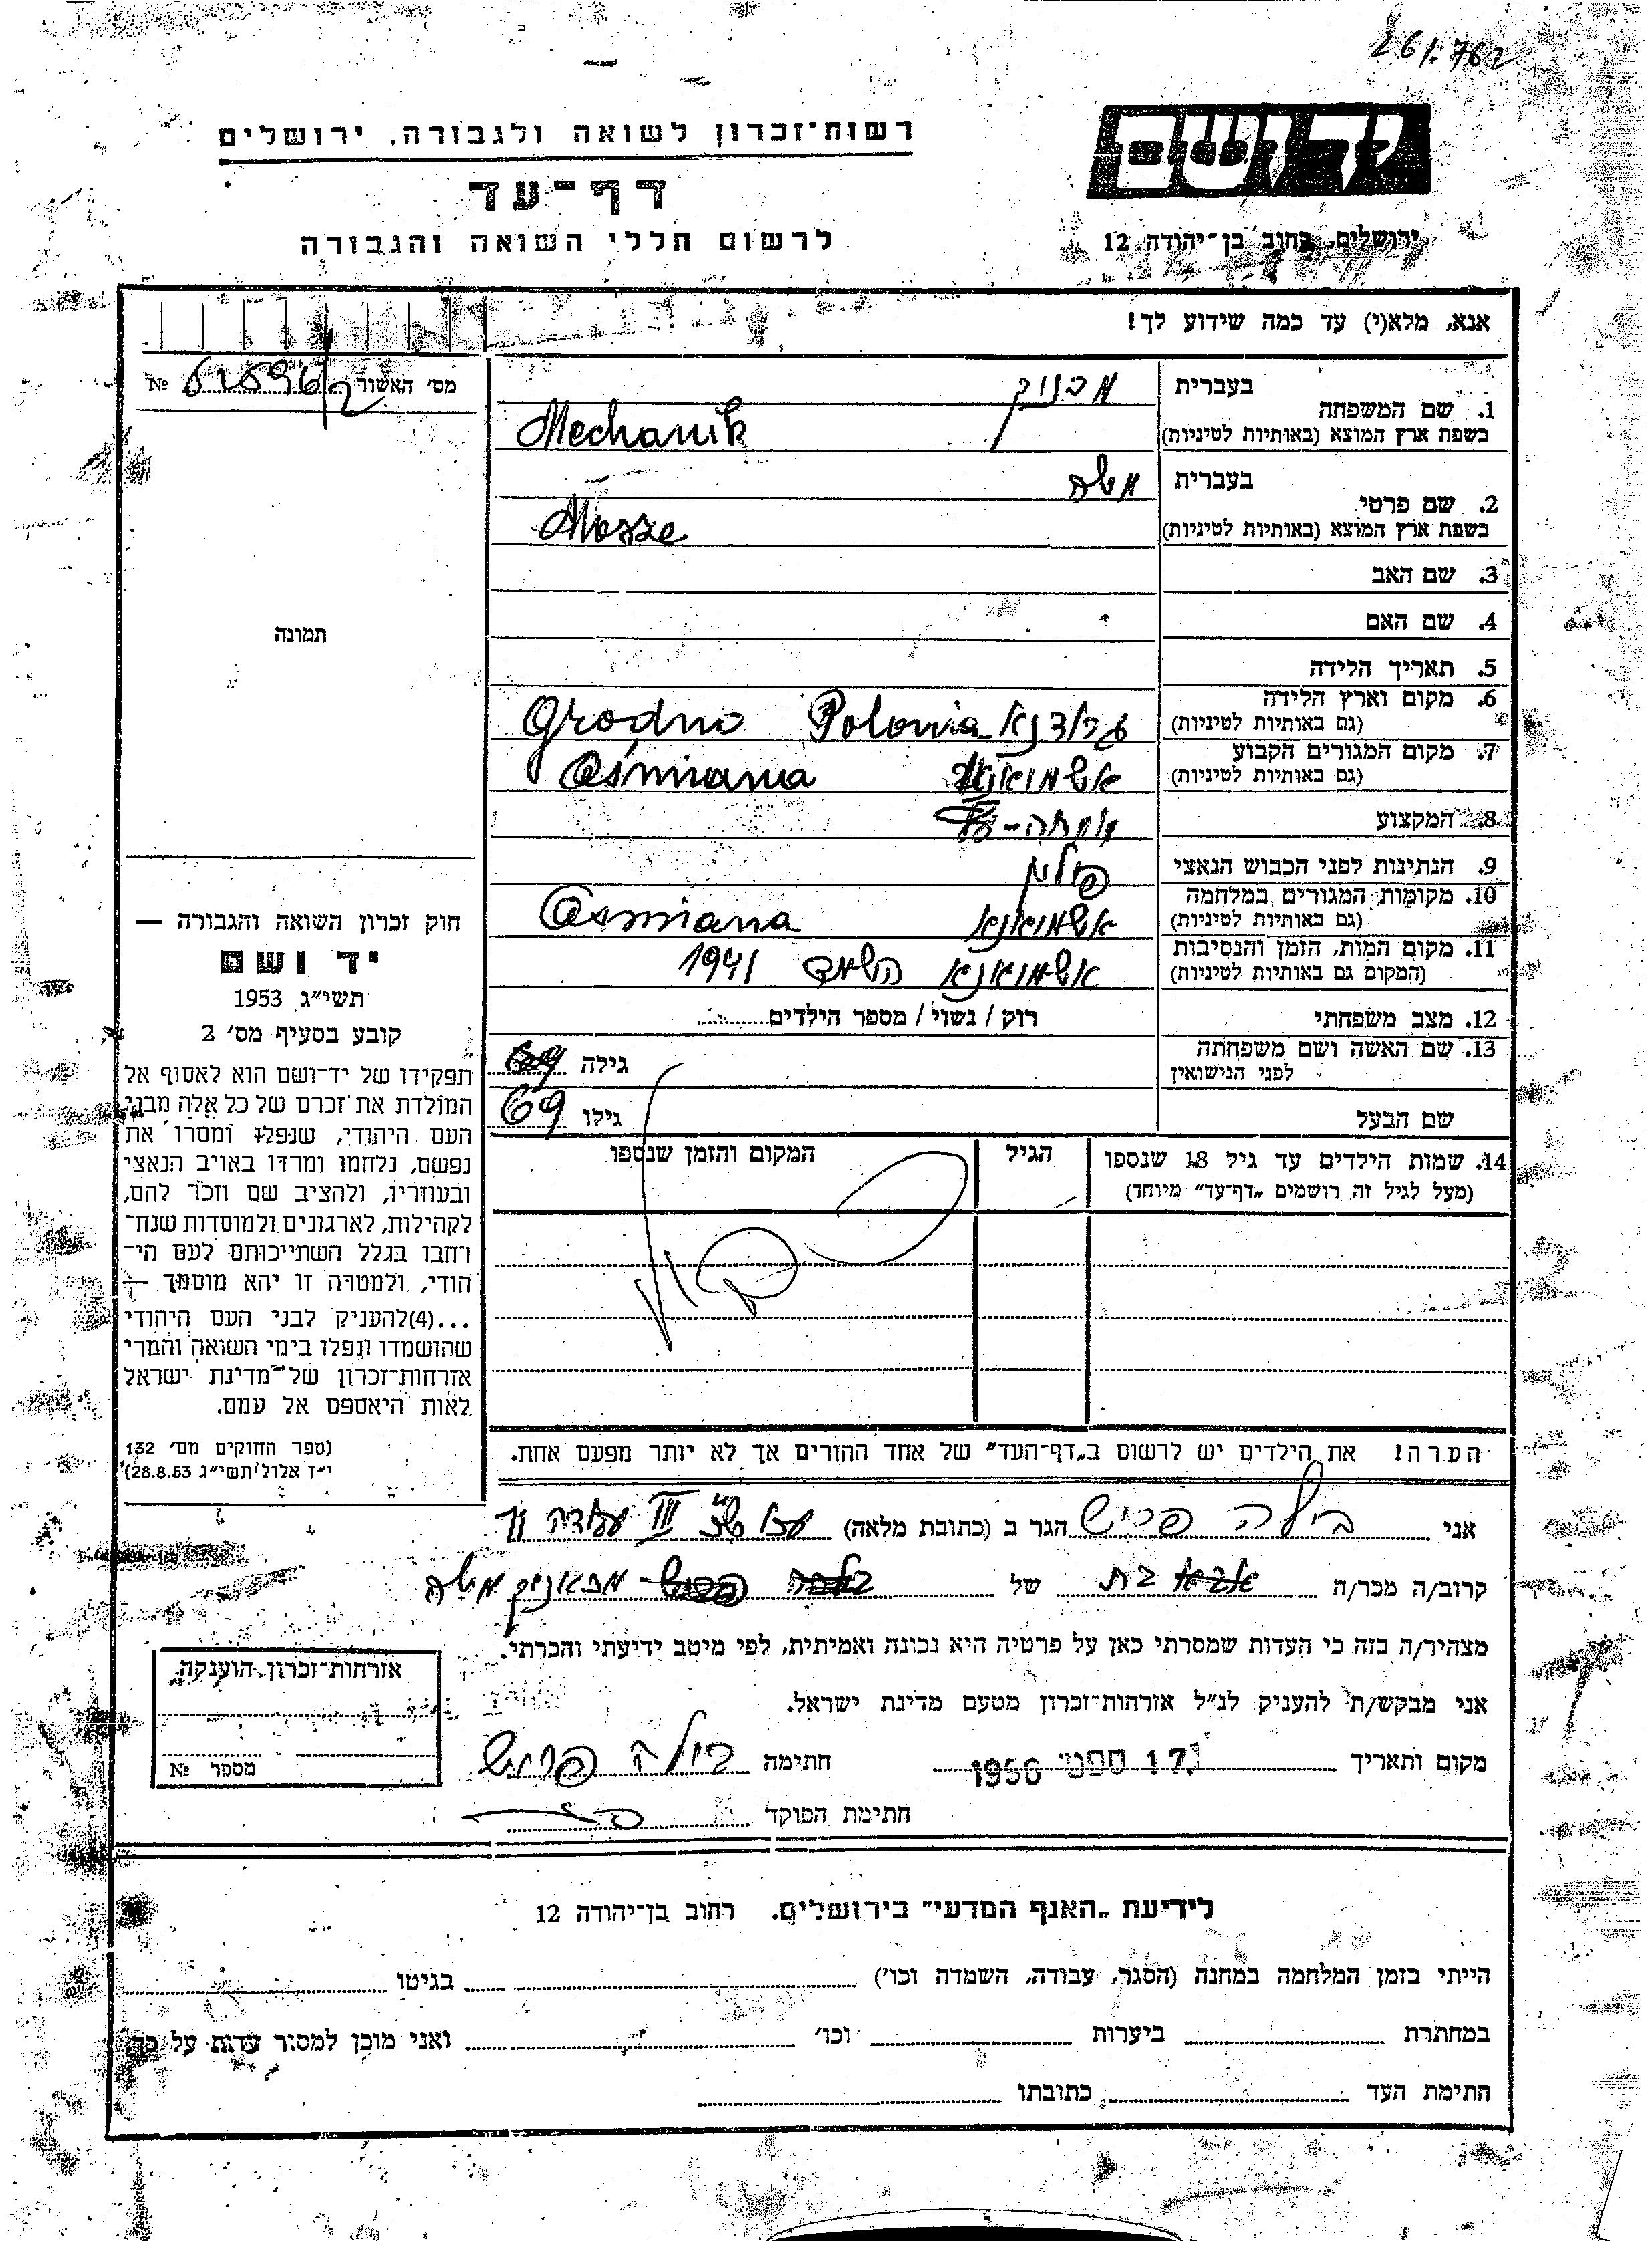 261.762
יד ושם
רשות־זכרון לשואה ולגבורה, ירושלים
דף־עד
לרשום חללי השואה והגבורה
ירושלים, רחוב בן־יהודה 12
אנא, מלא(י) עד כמה שידוע לך!
מס׳ האשור № 61596/2
תמונה
1. שם המשפחה
בעברית
בשפת ארץ המוצא (באותיות לטיניות) Mechanik
2. שם פרטי
בעברית משה
בשפת ארץ המוצא (באותיות לטיניות) Mosze
3. שם האב
4. שם האם
5. תאריך הלידה
6. מקום וארץ הלידה
(גם באותיות לטיניות) גרודנא Polonia Grodno
7. מקום המגורים הקבוע
(גם באותיות לטיניות) Ośmiana
8. המקצוע
9. הנתינות לפני הכבוש הנאצי פולין
10. מקומות המגורים במלחמה
(גם באותיות לטיניות) אשמיאנא Osmiana
11. מקום המות, הזמן והנסיבות
(המקום גם באותיות לטיניות) אשמיאנא 1941
12. מצב משפחתי רוק / נשוי / מספר הילדים
13. שם האשה ושם משפחתה
לפני הנישואין גילה
שם הבעל גילו 69
14. שמות הילדים עד גיל 18 שנספו
(מעל לגיל זה רושמים „דף־עד״ מיוחד)
הגיל
המקום והזמן שנספו
חוק זכרון השואה והגבורה —
יד ושם
תשי״ג 1953
קובע בסעיף מס׳ 2
תפקידו של יד־ושם הוא לאסוף אל
המולדת את זכרם של כל אלה מבני
העם היהודי, שנפלו ומסרו את
נפשם, נלחמו ומרדו באויב הנאצי
ובעוזריו, ולהציב שם וזכר להם,
לקהילות, לארגונים ולמוסדות שנח־
רחבו בגלל השתייכותם לעם הי־
הודי, ולמטרה זו יהא מוסמך —
...(4)להעניק לבני העם היהודי
שהושמדו ונפלו בימי השואה והמרי
אזרחות־זכרון של מדינת ישראל
לאות היאספם אל עמם.
(ספר החוקים מס׳ 132
י״ז אלול תשי״ג 28.8.53)
הערה! את הילדים יש לרשום ב„דף־העד״ של אחד ההורים אך לא יותר מפעם אחת.
אני בילה פריש הגר ב (כתובת מלאה)
קרוב/ה מכר/ה בת של משה
מצהיר/ה בזה כי העדות שמסרתי כאן על פרטיה היא נכונה ואמיתית, לפי מיטב ידיעתי והכרתי.
אני מבקש/ת להעניק לנ״ל אזרחות־זכרון מטעם מדינת ישראל.
מקום ותאריך 17 ספט׳ 1956 חתימה בילה פריש
חתימת הפוקד
אזרחות־זכרון הוענקה
מספר №
לידיעת „האגף המדעי״ בירושלים. רחוב בן־יהודה 12
הייתי בזמן המלחמה במחנה (הסגר, עבודה, השמדה וכו׳) בגיטו
במחתרת ביערות וכו׳ ואני מוכן למסור עדות על כך.
חתימת העד כתובתו